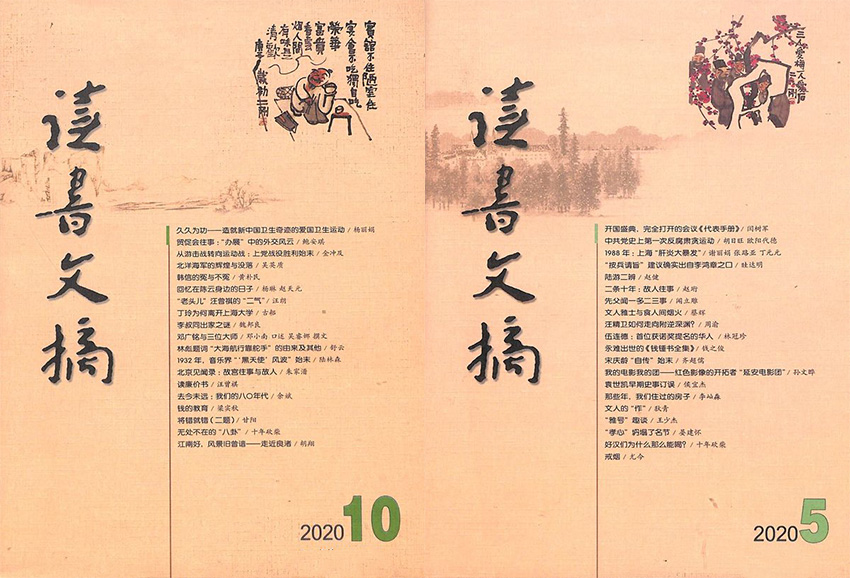 读书文摘
宾馆不住陋室住
宴会不吃独自吃
荣华
富贵
看云
烟人间
有味是
清欢
久久为功——造就新中国卫生奇迹的爱国卫生运动 / 杨丽娟
贸促会往事：“办展”中的外交风云 / 鲍安琪
从游击战转向运动战：上党战役胜利始末 / 金冲及
北洋海军的辉煌与没落 / 吴英质
韩信的冤与不冤 / 黄朴民
回忆在陈云身边的日子 / 杨琳 赵天元
“老头儿”汪曾祺的“二气” / 汪朗
丁玲为何离开上海大学 / 古船
李叔同出家之谜 / 魏邦良
邓广铭与三位大师 / 邓小南 口述 吴睿娜 撰文
林彪题词“大海航行靠舵手”的由来及其他 / 舒云
1932 年，音乐界“‘黑天使’风波”始末 / 陆林森
北京见闻录：故宫往事与故人 / 朱家溍
读廉价书 / 汪曾祺
去今未远：我们的八〇年代 / 余斌
钱的教育 / 梁实秋
将错就错（二题） / 甘阳
无处不在的“八卦” / 十年砍柴
江南好，风景旧曾谙——走近良渚 / 胡翔
2020 10
读书文摘
三人爱梅一人爱石
开国盛典，完全打开的会议《代表手册》 / 闫树军
中共党史上第一次反腐肃贪运动 / 胡日旺 欧阳代德
1988 年：上海“肝炎大暴发” / 谢丽娟 张路亚 丁元元
“按兵请旨”建议确实出自李鸿章之口 / 眭达明
陆游二辨 / 赵健
二条十年：故人往事 / 赵珩
先父闻一多二三事 / 闻立雕
文人雅士与食人间烟火 / 蔡辉
汪精卫如何走向附逆深渊？ / 周渝
伍连德：首位获诺奖提名的华人 / 林冠珍
永难出世的《钱锺书全集》 / 钱之俊
宋庆龄“自传”始末 / 齐超儒
我的电影我的团——红色影像的开拓者“延安电影团” / 孙文晔
袁世凯早期史事订误 / 侯宜杰
那些年，我们住过的房子 / 李屾淼
文人的“作” / 狄青
“雅号”趣谈 / 王少杰
“孝心”坍塌了名节 / 晏建怀
好汉们为什么那么能喝？ / 十年砍柴
戒烟 / 尤今
2020 5